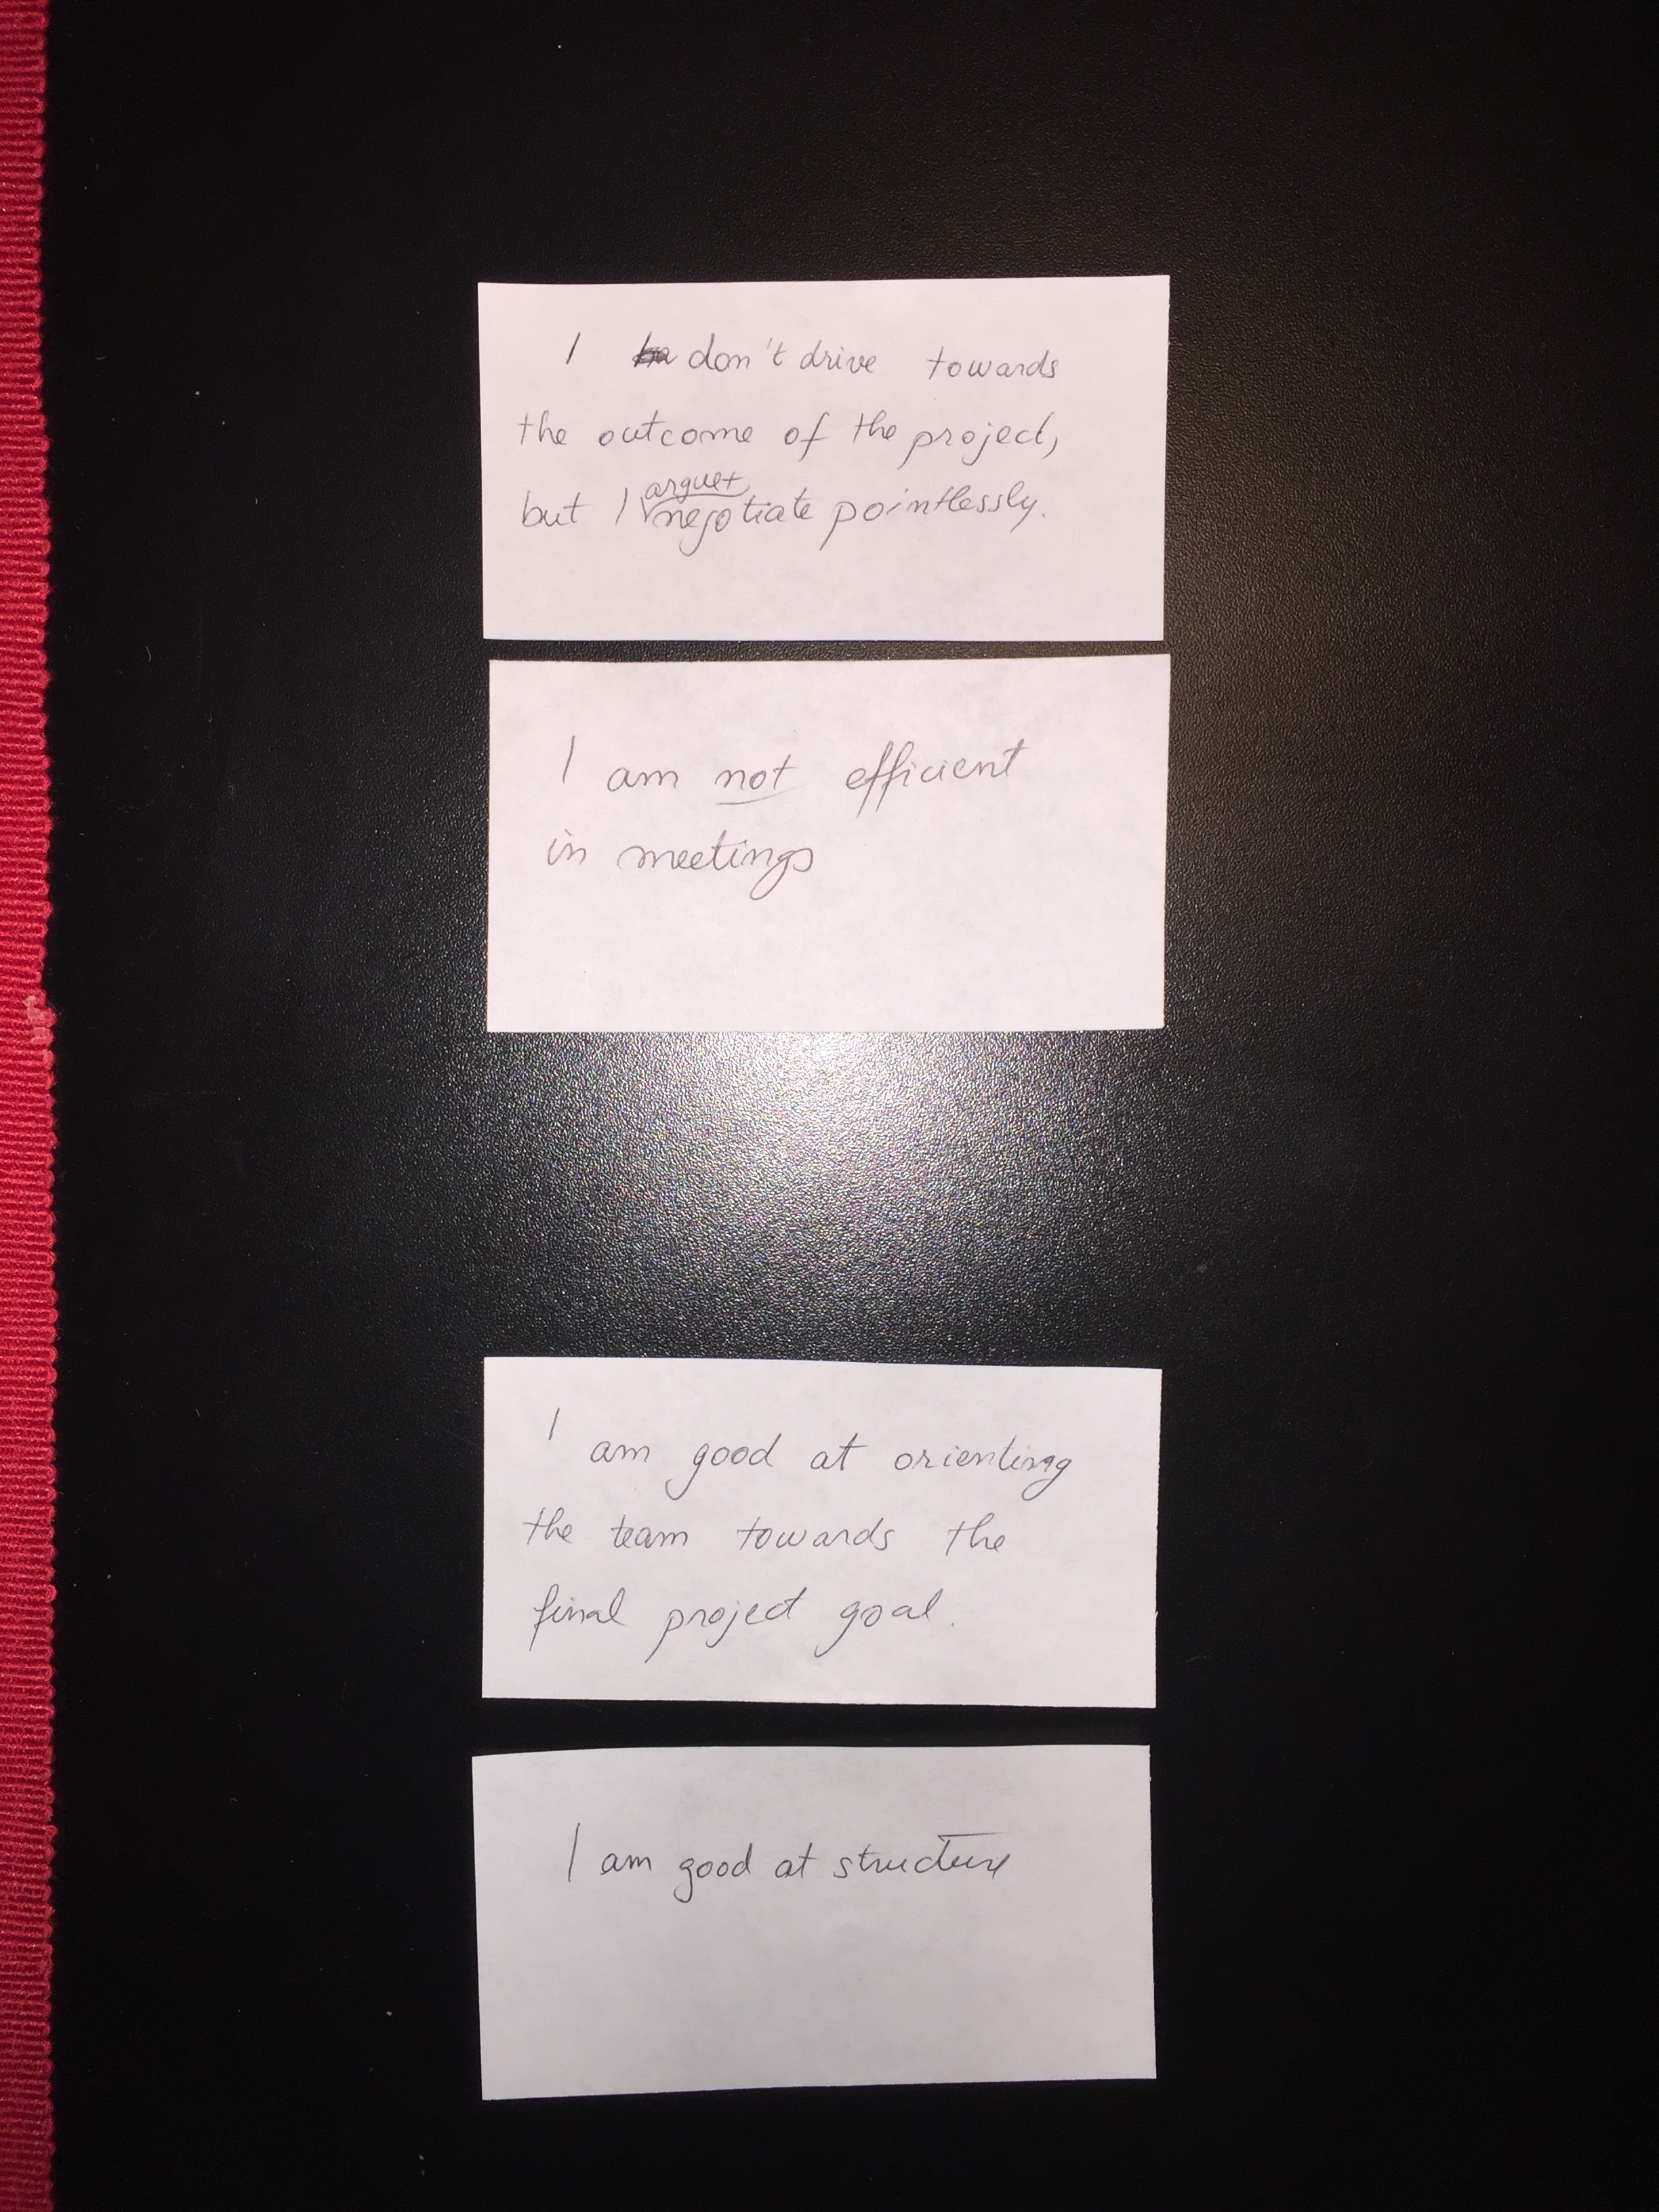 I don't drive towards
the outcome of the project,
but I argue + negotiate pointlessly.
I am not efficient
in meetings
I am good at orienting
the team towards the
final project goal.
I am good at structure